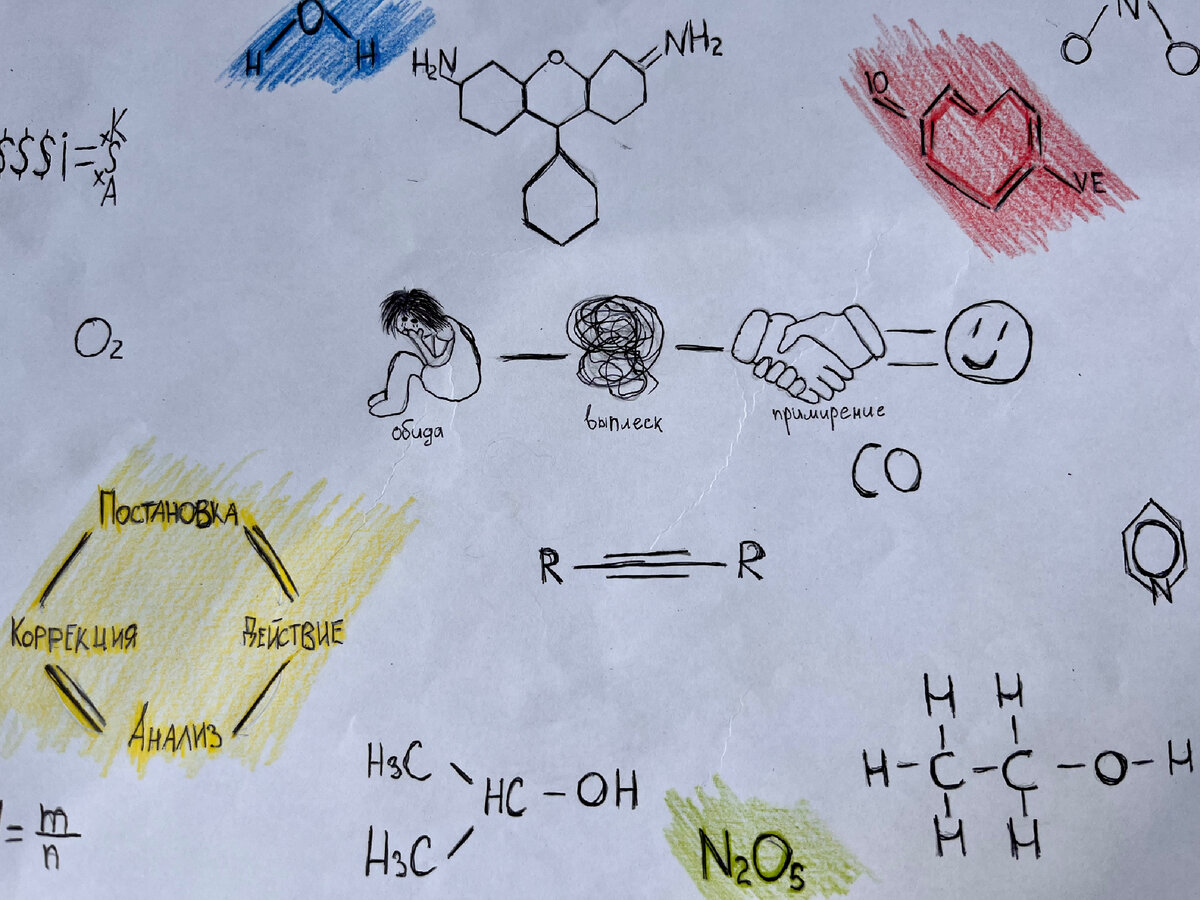 H O H
H₂N O NH₂
N
O O
IO
VE
$$$i=ˣKSₓA
O₂
обида — выплеск — примирение =
CO
Постановка
Коррекция Действие
Анализ
R≡R
N
H₃C
HC – OH
H₃C
N₂O₅
H H
H – C – C – O – H
H H
= m
n